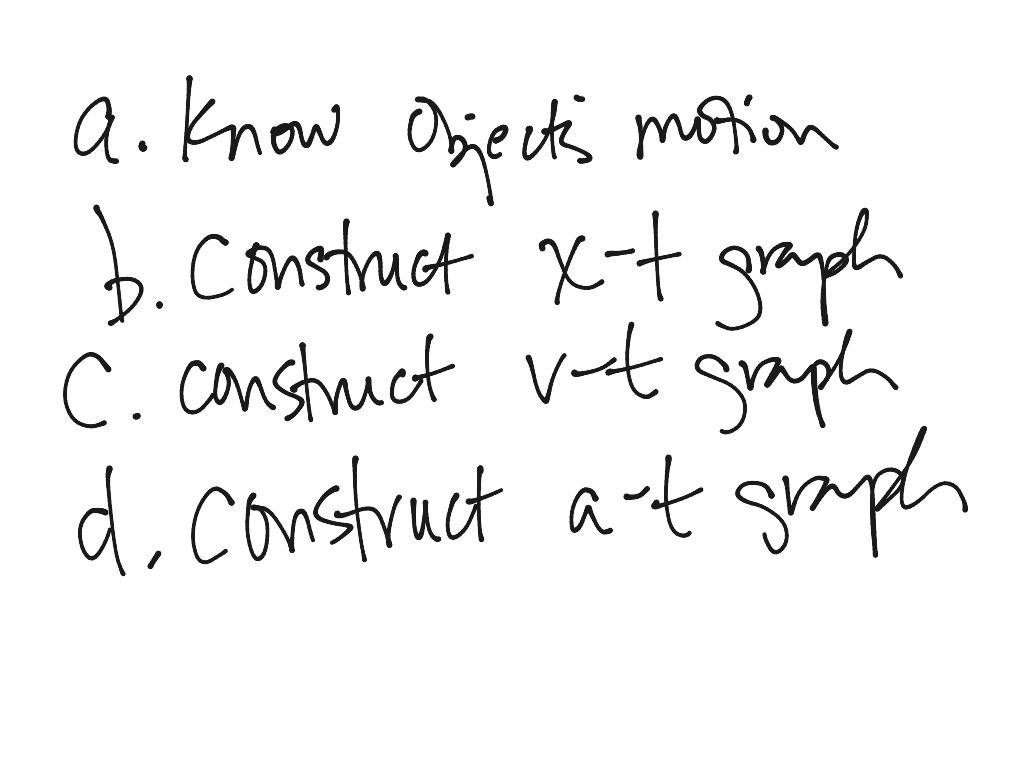 a. Know Objects motion
b. Construct x-t graph
c. construct v-t graph
d. construct a-t graph